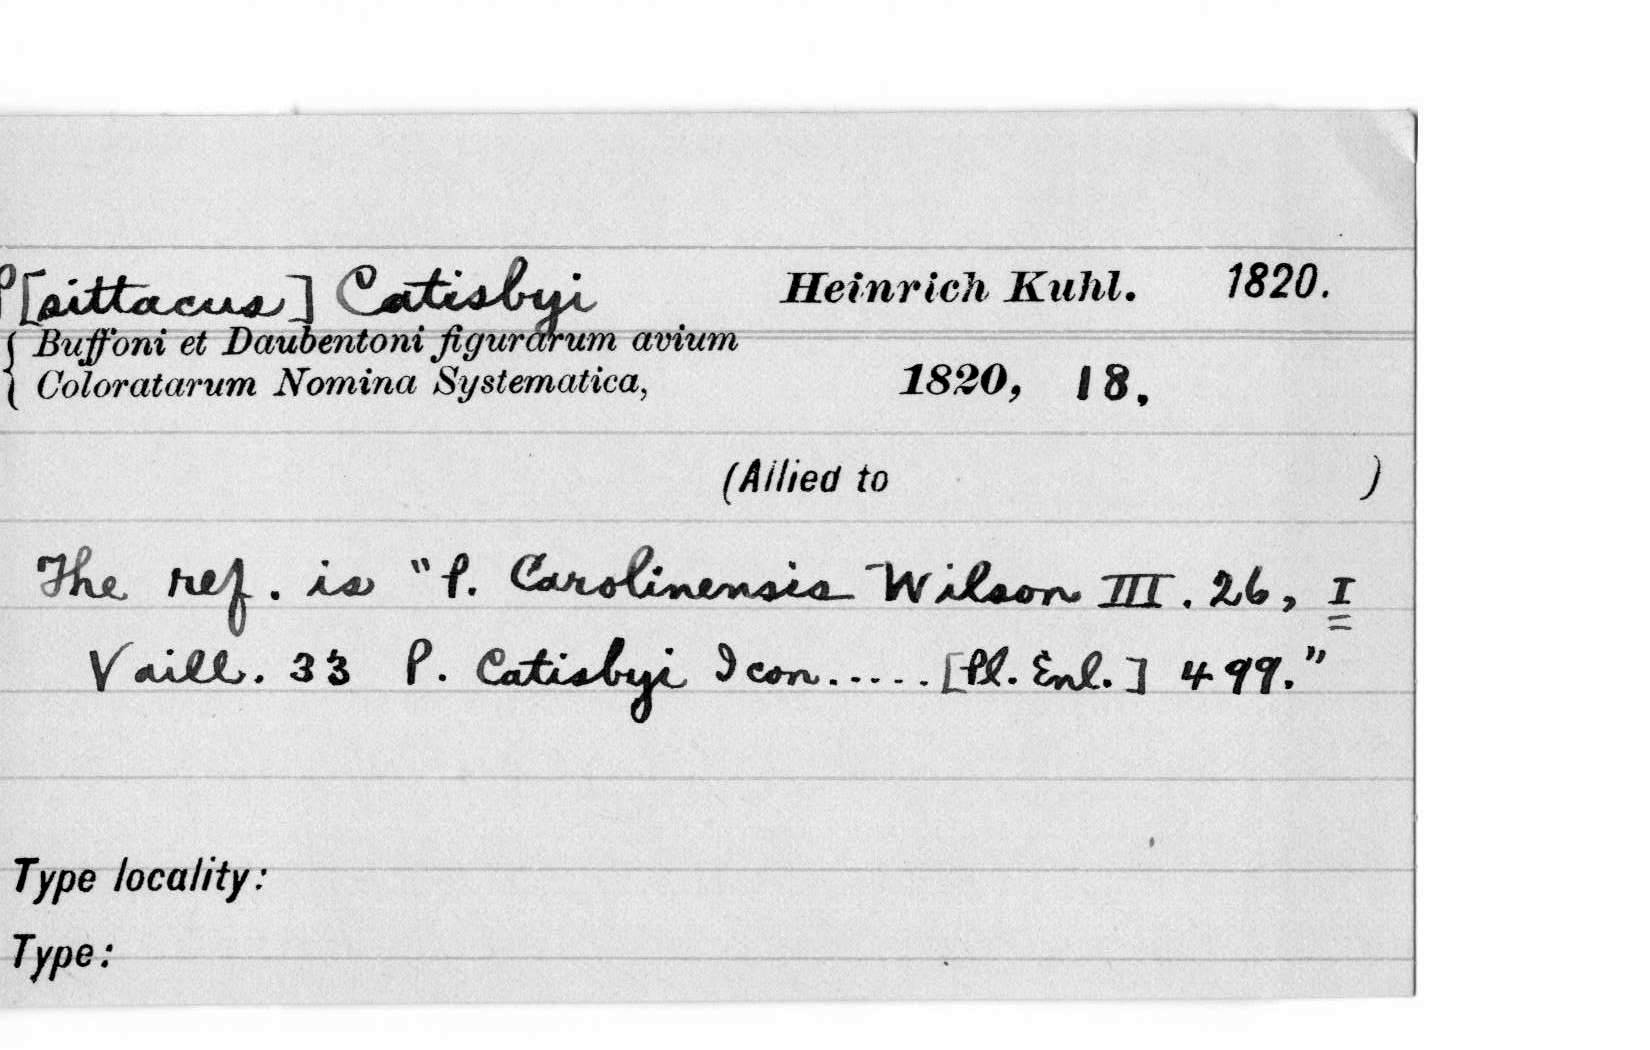 P[sittacus] Catisbyi Heinrich Kuhl. 1820.
Buffoni et Daubentoni figurarum avium
Coloratarum Nomina Systematica, 1820, 18.
(Allied to )
The ref. is "P. Carolinensis Wilson III. 26, I
Vaill. 33 P. Catisbyi Icon.....[Pl. Enl.] 499."
Type locality:
Type: